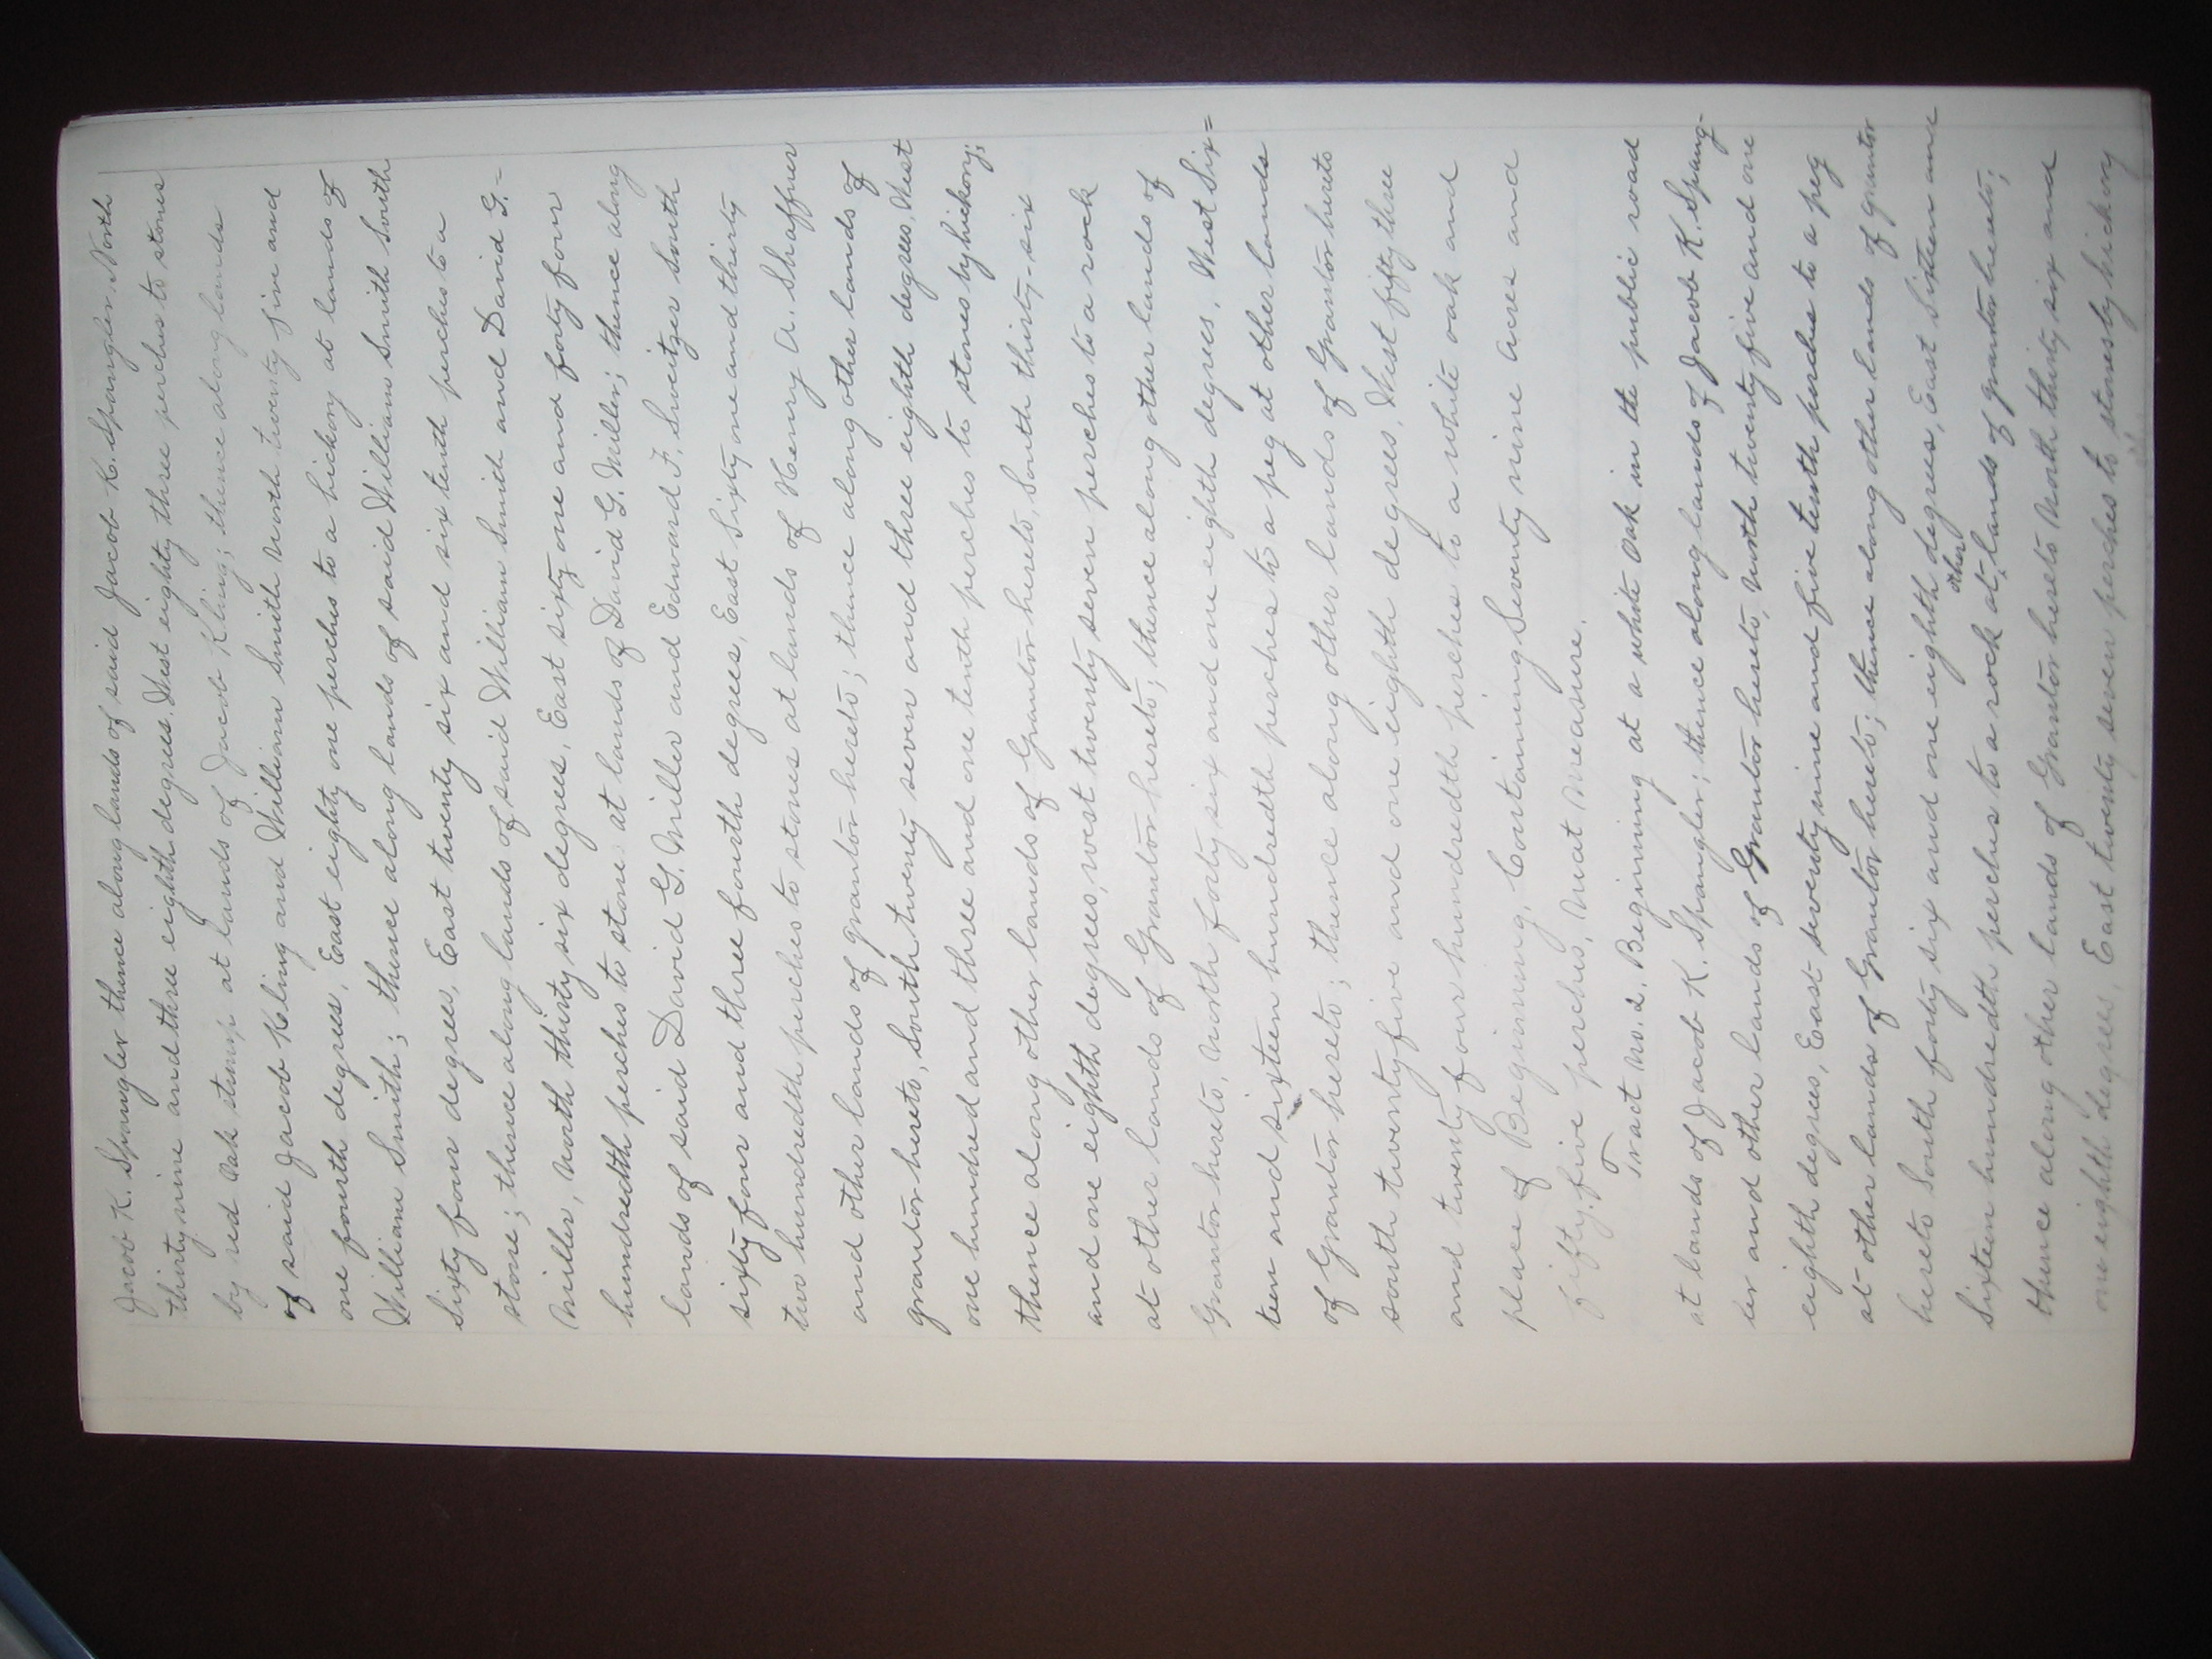 Jacob K. Spangler thence along lands of said Jacob K. Spangler, North
thirty nine and three eighth degrees, West eighty three perches to stones
by red oak stump at lands of Jacob Kling; thence along lands
of said Jacob Kling and William Smith North twenty five and
one fourth degrees, East eighty one perches to a hickory at lands of
William Smith; thence along lands of said William Smith South
Sixty four degrees, East twenty six and six tenth perches to a
stone; thence along lands of said William Smith and David G.-
Miller, North thirty six degrees, East sixty one and forty four
hundredth perches to stones at lands of David G. Miller; thence along
lands of said David G. Miller and Edward F. Sweitzer South
sixty four and three fourth degrees, East Sixty one and thirty
two hundredth perches to stones at lands of Henry A. Shaffner
and other lands of grantor hereto; thence along other lands of
grantor hereto, South twenty seven and three eighth degrees, West
one hundred and three and one tenth perches to stones by hickory;
thence along other lands of Grantor hereto, South thirty-six
and one eighth degrees, west twenty seven perches to a rock
at other lands of Grantor hereto; thence along other lands of
Grantor hereto, North forty six and one eighth degrees, West Six=
teen and sixteen hundredth perches to a peg at other lands
of Grantor hereto; thence along other lands of Grantor hereto
south twenty five and one eighth degrees, West fifty three
and twenty four hundredth perches to a white oak and
place of Beginning, Containing Seventy nine Acres and
fifty-five perches, Neat Measure.
Tract No. 2. Beginning at a white Oak in the public road
at lands of Jacob K. Spangler; thence along lands of Jacob K. Spang-
ler and other lands of Grantor hereto, North twenty five and one
eighth degrees, East seventy nine and five tenth perches to a peg
at other lands of Grantor hereto; thence along other lands of grantor
hereto South forty six and one eighth degrees, East Sixteen and
Sixteen hundredth perches to a rock at other lands of grantor hereto;
thence along other lands of Grantor hereto North thirty six and
one eighth degrees, East twenty seven perches to stones by hickory